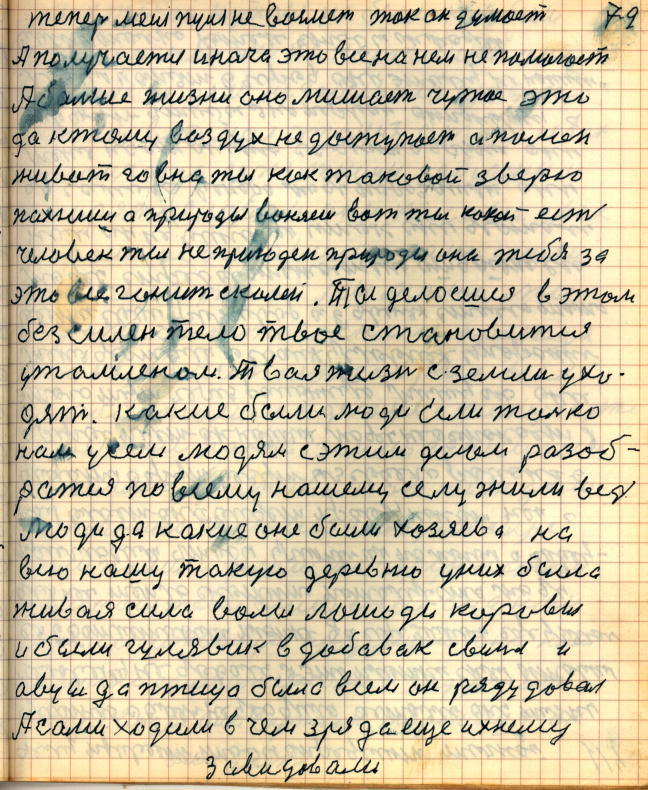 тепер меня пуля не возмет так он думает 79
А получается иначе это все на нем не помогает
А больше жизни оно мишает чужое это
да ктому воздух не доступает а помен
живот говна ты как таковой зверю
пахниш а природы воняеш вот ты какой есть
человек ты не пригоден природи она тебя за
это все гонит сколей. Ты делаешся в этом
безсилен тело твое становится
утомленом. Твоя жизн с земли ухо-
дят. Какие были люди если толко
нам усем людям с этим делом разоб-
ратся по всему нашему селу жили вед
люди да какие оне были хозяева на
всю нашу такую деревню у них была
живая сила волы лошоди коровы
и были гулявик в добавак свиня и
овци да птица была всем он рядудовал
А сами ходили в чем зря да еще ихнему
завидовали